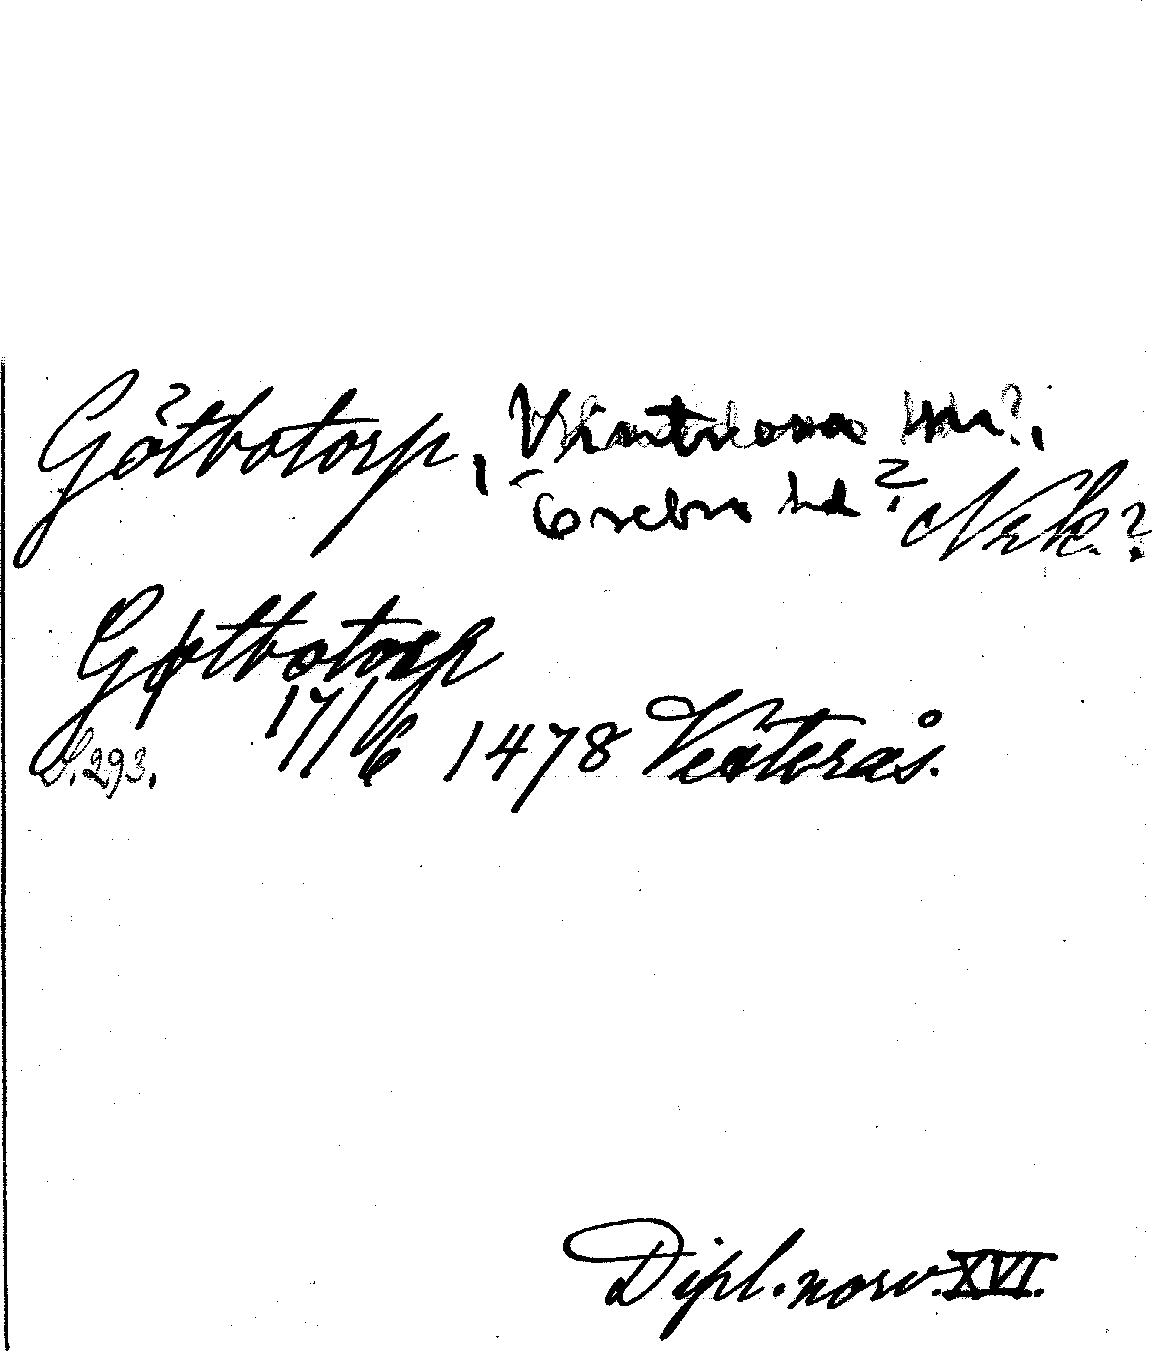 Götbotorp, Vintrosa sn?,
Örebro hd? Närk.?
Gøtbotorp
17/6 1478 Västerås.
S. 293.
Dipl. norv. XVI.